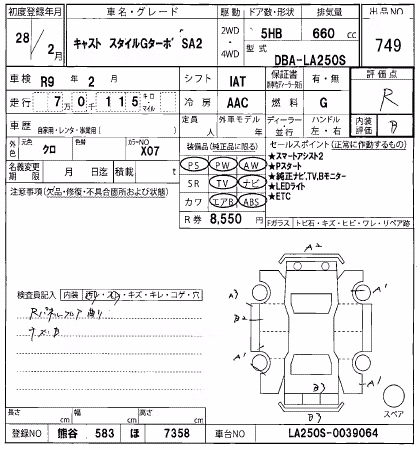 初度登録年月 車名・グレード 駆動 ドア数・形状 排気量 出品NO
28 / 2月 キャスト スタイルGターボ SA2 2WD・4WD 5HB 660 cc 749
型式 DBA-LA250S
車検 R9 年 2 月 シフト IAT 保証書 有・無 評価点
走行 7万0千115 キロ・マイル 冷房 AAC 燃料 G R
車歴 自家用・レンタ・事業用( ) 定員 人 外車モデル 年 ディーラー 並行 ハンドル 左・右 内装評価 B
外色 元色 クロ 色替 カラーNO X07 装備品(純正品に限る) セールスポイント(正常に作動するもの)
PS PW AW ★スマートアシスト2
名義変更期限 月 日 積載 t SR TV ナビ ★Pスタート
★純正ナビ,TV,Bモニター
注意事項(欠品・修復・不具合箇所および状態) カワ エアB ABS ★LEDライト
★ETC
R券 8,550円 Fガラス トビ石・キズ・ヒビ・ワレ・リペア跡
A2
検査員記入 内装 ・キズ・キレ・コゲ・穴 A3 A1
B2
Rパネルフロア曲り
キズ・B
A2 A1
A1
B3
スペア
長さ cm 幅 cm 高さ cm
登録NO 熊谷 583 ほ 7358 車台NO LA250S-0039064